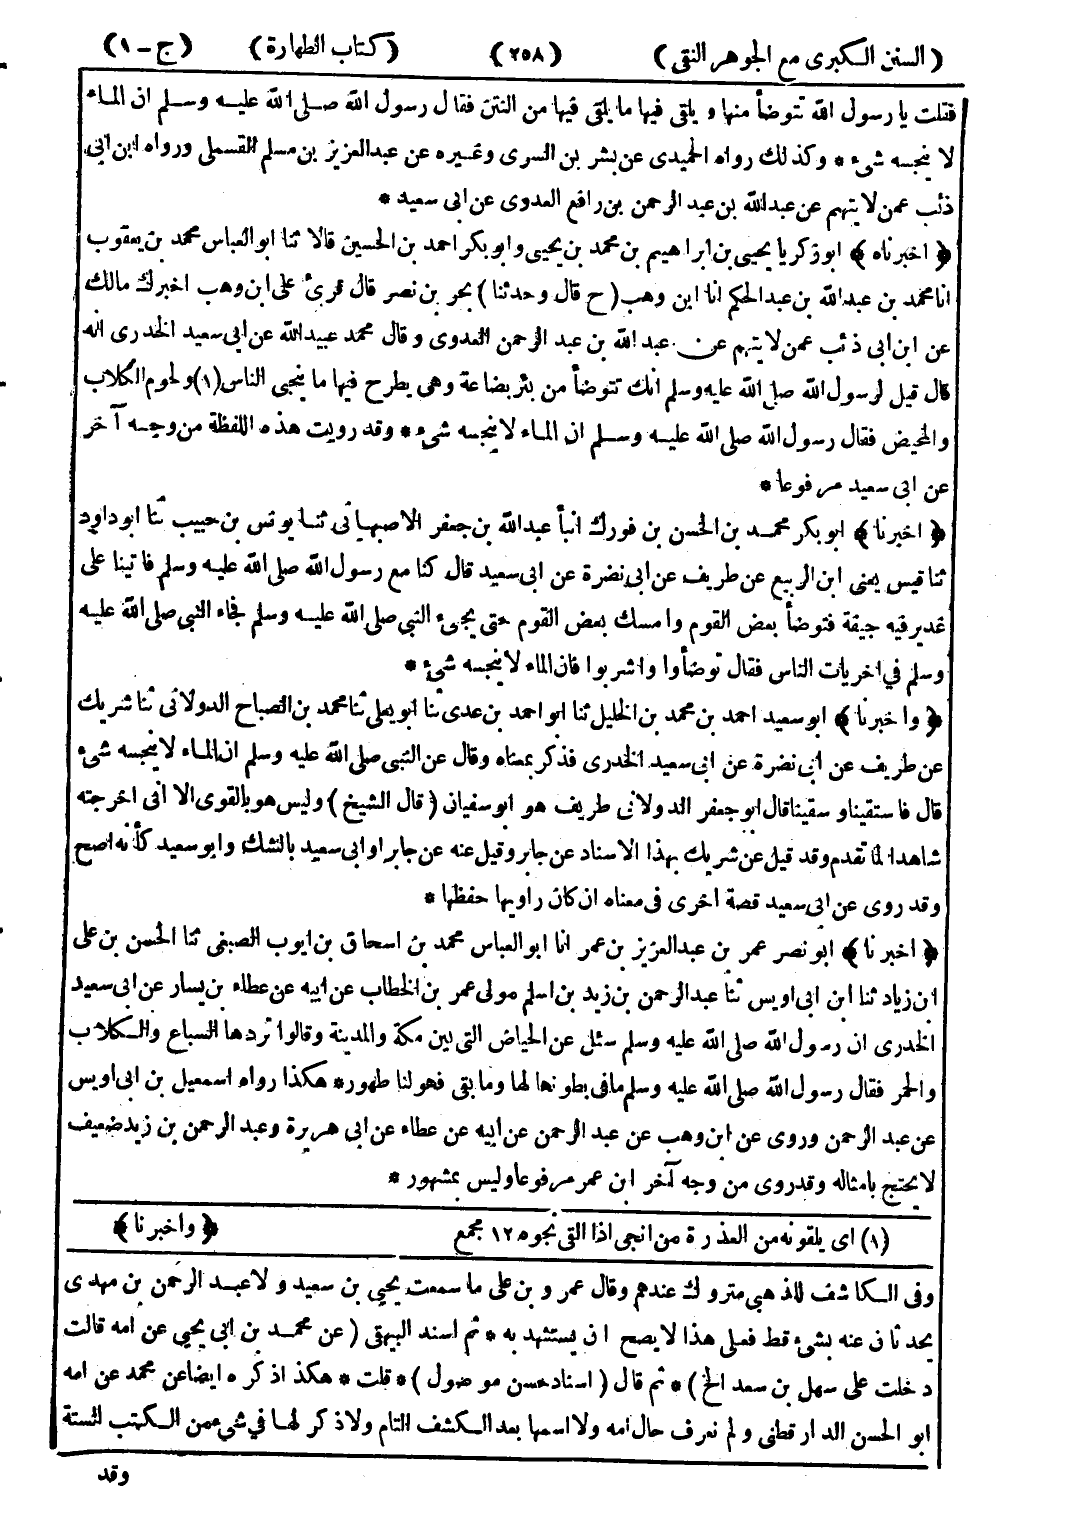 (السنن الكبرى مع الجوهر النقى) (٢٥٨) (كتاب الطهارة) (ج-١)
فقلت يا رسول الله تتوضأ منها و يلقى فيها ما يلقى فيها من النتن فقال رسول الله صلى الله عليه وسلم ان الماء
لا ينجسه شىء * وكذلك رواه الحميدى عن بشر بن السرى وغيره عن عبدالعزيز بن مسلم القسملى ورواه ابن ابى
ذئب عمن لا يتهم عن عبدالله بن عبد الرحمن بن رافع العدوى عن ابى سعيد *
﴿ اخبرناه ﴾ ابو زكريا يحيى بن ابراهيم بن محمد بن يحيى وابو بكر احمد بن الحسين قالا ثنا ابو العباس محمد بن يعقوب
انا محمد بن عبد الله بن عبد الحكم انا ابن وهب (ح قال وحدثنا) بحر بن نصر قال قرئ على ابن وهب اخبرك مالك
عن ابن ابى ذئب عمن لا يتهم عن عبد الله بن عبد الرحمن العدوى وقال محمد عبيدالله عن ابى سعيد الخدرى انه
قال قيل لرسول الله صلى الله عليه وسلم انك تتوضأ من بئر بضاعة وهى يطرح فيها ما ينجى الناس (١) ولحوم الكلاب
والمحيض فقال رسول الله صلى الله عليه وسلم ان الماء لا ينجسه شىء * وقد رويت هذه اللفظة من وجه آخر
عن ابى سعيد مرفوعا *
﴿ اخبرنا ﴾ ابو بكر محمد بن الحسن بن فورك انبأ عبدالله بن جعفر الاصبهانى ثنا يونس بن حبيب ثنا ابو داود
ثنا قيس يعنى ابن الربيع عن طريف عن ابى نضرة عن ابى سعيد قال كنا مع رسول الله صلى الله عليه وسلم فاتينا على
غدير فيه جيفة فتوضأ بعض القوم وامسك بعض القوم حتى يجىء النبى صلى الله عليه وسلم فجاء النبى صلى الله عليه
وسلم فى اخريات الناس فقال توضأوا واشربوا فان الماء لا ينجسه شىء *
﴿ واخبرنا ﴾ ابو سعيد احمد بن محمد بن الخليل ثنا ابو احمد بن عدى ثنا ابو يعلى ثنا محمد بن الصباح الدولابى ثنا شريك
عن طريف عن ابى نضرة عن ابى سعيد الخدرى فذكر بمعناه وقال عن النبى صلى الله عليه وسلم ان الماء لا ينجسه شىء
قال فاستقينا وسقينا قال ابو جعفر الدولابى طريف هو ابو سفيان (قال الشيخ) وليس هو بالقوى الا انى اخرجته
شاهدا لما تقدم وقد قيل عن شريك بهذا الاسناد عن جابر وقيل عنه عن جابر او ابى سعيد بالشك وابو سعيد كأنه اصح
وقد روى عن ابى سعيد قصة اخرى فى معناه ان كان راويها حفظها *
﴿ اخبرنا ﴾ ابو نصر عمر بن عبد العزيز بن عمر انا ابو العباس محمد بن اسحاق بن ايوب الصبغى ثنا الحسن بن على
ابن زياد ثنا ابن ابى اويس ثنا عبدالرحمن بن زيد بن اسلم مولى عمر بن الخطاب عن ابيه عن عطاء بن يسار عن ابى سعيد
الخدرى ان رسول الله صلى الله عليه وسلم سئل عن الحياض التى بين مكة والمدينة وقالوا تردها السباع والكلاب
والحمر فقال رسول الله صلى الله عليه وسلم ما فى بطونها لها وما بقى فهو لنا طهور * هكذا رواه اسمعيل بن ابى اويس
عن عبد الرحمن وروى عن ابن وهب عن عبد الرحمن عن ابيه عن عطاء عن ابى هريرة وعبد الرحمن بن زيد ضعيف
لا يحتج بامثاله وقد روى من وجه آخر ابن عمر مرفوعا وليس بمشهور *
﴿ واخبرنا ﴾
(١) اى يلقونه من العذرة من انجى اذا القى نجوه ١٢ مجمع
وفى الكاشف للذهبى متروك عندهم وقال عمرو بن على ما سمعت يحيى بن سعيد ولا عبد الرحمن بن مهدى
يحدثان عنه بشىء قط فعلى هذا لا يصح ان يستشهد به * ثم اسند البيهقى (عن محمد بن ابى يحيى عن امه قالت
دخلت على سهل بن سعد الخ) * ثم قال (اسناد حسن موضول) * قلت * هكذا ذكره ايضا عن محمد عن امه
ابو الحسن الدارقطنى ولم نعرف حال امه ولا اسمها بعد الكشف التام ولا ذكر لها فى شىء من الكتب الستة
وقد